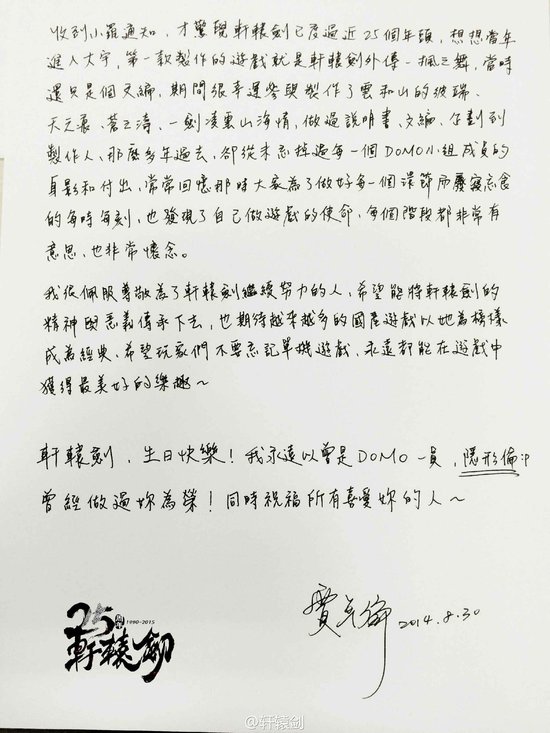 收到小羅通知，才驚覺軒轅劍已度過近25個年頭，想想當年
進入大宇，第一款製作的遊戲就是軒轅劍外傳-楓之舞，當時
還只是個文編，期間很幸運參與製作了雲和山的彼端、
天之痕、蒼之濤、一劍凌雲山海情，做過說明書、文編、企劃到
製作人，那麼多年過去，卻從未忘掉過每一個DOMO小組成員的
身影和付出，常常回憶那時大家為了做好每一個環節而廢寢忘食
的每時每刻，也發現了自己做遊戲的使命，每個階段都非常有
意思，也非常懷念。
我很佩服尊敬為了軒轅劍繼續努力的人，希望能將軒轅劍的
精神與意義傳承下去，也期待越來越多的國產遊戲以她為榜樣
成為經典，希望玩家們不要忘記單機遊戲，永遠都能在遊戲中
獲得最美好的樂趣~
軒轅劍，生日快樂！我永遠以曾是DOMO一員，隱形倫:P
曾經做過妳為榮！同時祝福所有喜愛妳的人~
2014.8.30
25周年 1990-2015
軒轅劍
@轩辕剑